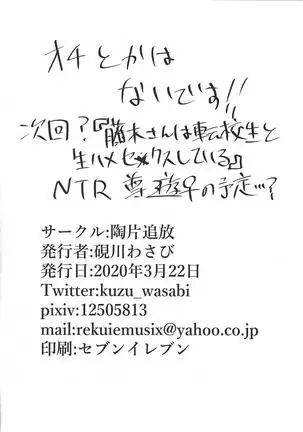 オチとかは
ないです!!
次回?『藤木さんは転校生と
生ハメセックスしている』
NTR の予定…?
サークル:陶片追放
発行者:硯川わさび
発行日:2020年3月22日
Twitter:kuzu_wasabi
pixiv:12505813
mail:rekuiemusix@yahoo.co.jp
印刷:セブンイレブン